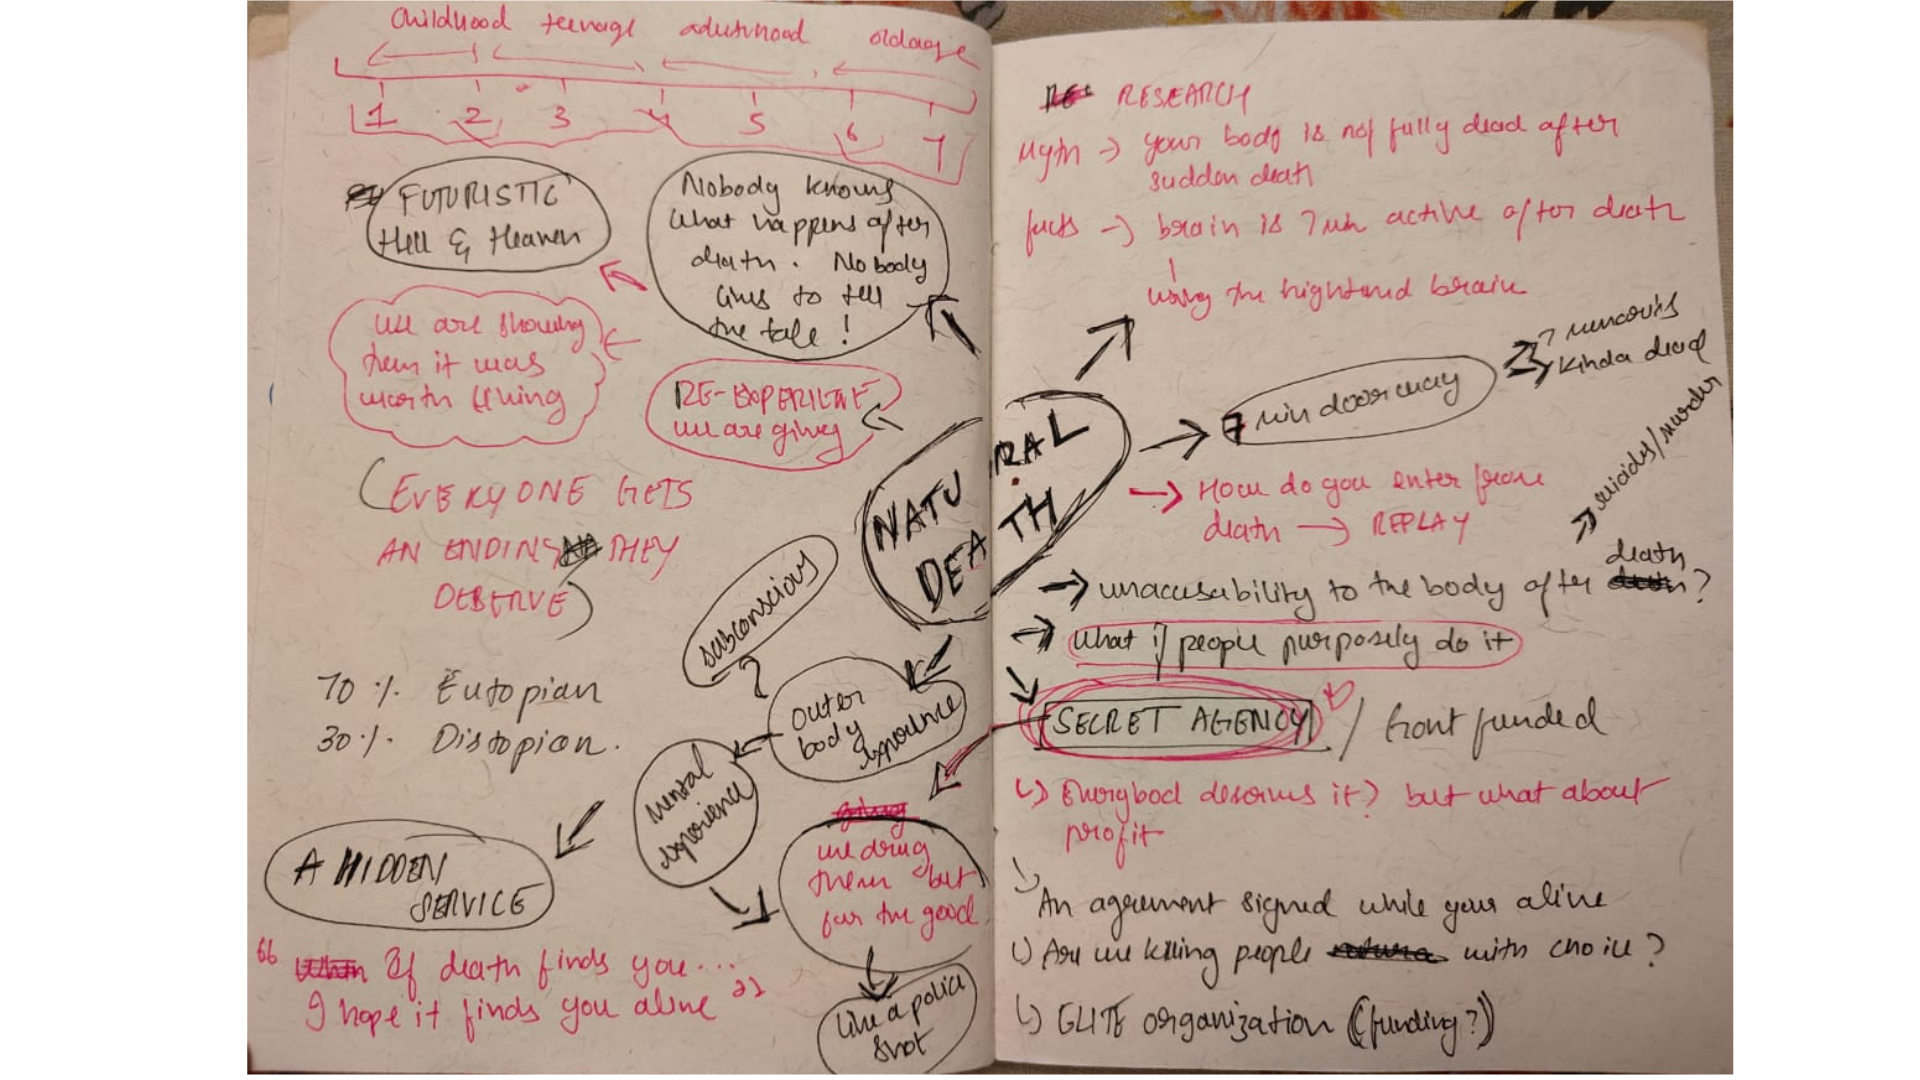 childhood teenage adulthood oldage
1 2 3 4 5 6 7
FUTURISTIC
Hell & Heaven
Nobody knows
what happens after
death. Nobody
lives to tell
the tale!
we are showing
them it was
worth living
RE-EXPERIENCE
we are giving
(EVERYONE GETS
AN ENDING THEY
DESERVE)
NATURAL
DEATH
subconscious
?
outer
body
experience
70 % Eutopian
30 % Distopian.
Mental
experience
A HIDDEN
SERVICE
we drug
them but
for the good
like a polio
shot
" If death finds you...
I hope it finds you alive "
RESEARCH
Myth → your body is not fully dead after
sudden death
facts → brain is 7 min active after death
using the hightend brain
7 min doorway
kinda dead
→ How do you enter from
death → REPLAY
→ suicides/murder
→ unaccusability to the body after death?
→ what if people purposely do it
SECRET AGENCY / front funded
Everybod deserves it? but what about
profit
An agreement signed while your alive
Are we killing people with choice?
ELITE organization (funding?)